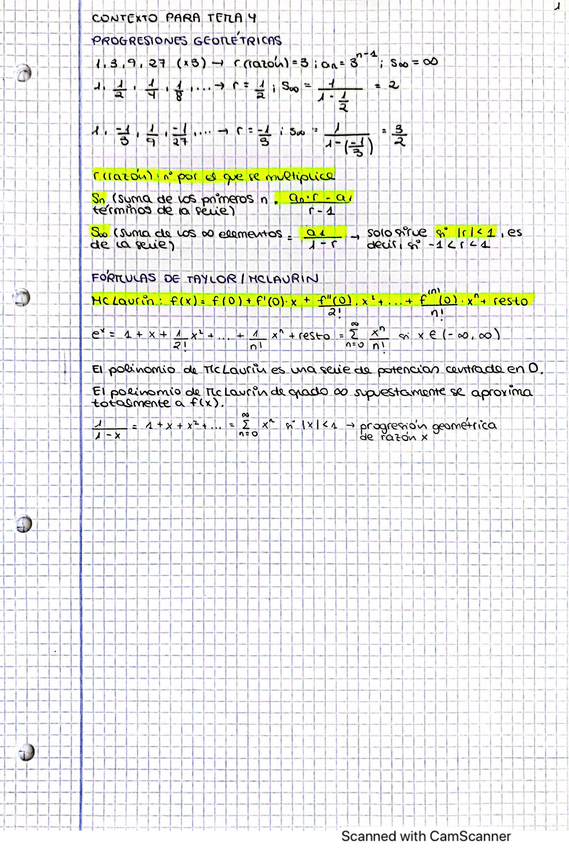 1
CONTEXTO PARA TEMA 4
PROGRESIONES GEOMÉTRICAS
1, 3, 9, 27 (×3) → r (razón) = 3 ; aₙ = 3ⁿ⁻¹ ; S∞ = ∞
1, 1/2, 1/4, 1/8, ... → r = 1/2 ; S∞ = 1/(1 - 1/2) = 2
1, -1/3, 1/9, -1/27, ... → r = -1/3 ; S∞ = 1/(1-(-1/3)) = 3/2
r (razón): nº por el que se multiplica
Sn (suma de los primeros n = (aₙ·r - a₁)/(r - 1)
términos de la serie)
S∞ (suma de los ∞ elementos = a₁/(1 - r) → solo sirve si |r| < 1, es
de la serie) decir, si -1 < r < 1
FÓRMULAS DE TAYLOR / MCLAURIN
Mc Laurin: f(x) = f(0) + f'(0)·x + f''(0)/2! · x² + ... + f⁽ⁿ⁾(0)/n! · xⁿ + resto
eˣ = 1 + x + 1/2! x² + ... + 1/n! xⁿ + resto = ∑_{n=0}^{∞} xⁿ/n! si x ∈ (-∞, ∞)
El polinomio de McLaurin es una serie de potencias centrada en 0.
El polinomio de McLaurin de grado ∞ supuestamente se aproxima
totalmente a f(x).
1/(1 - x) = 1 + x + x² + ... = ∑_{n=0}^{∞} xⁿ si |x| < 1 → progresión geométrica
de razón x
Scanned with CamScanner